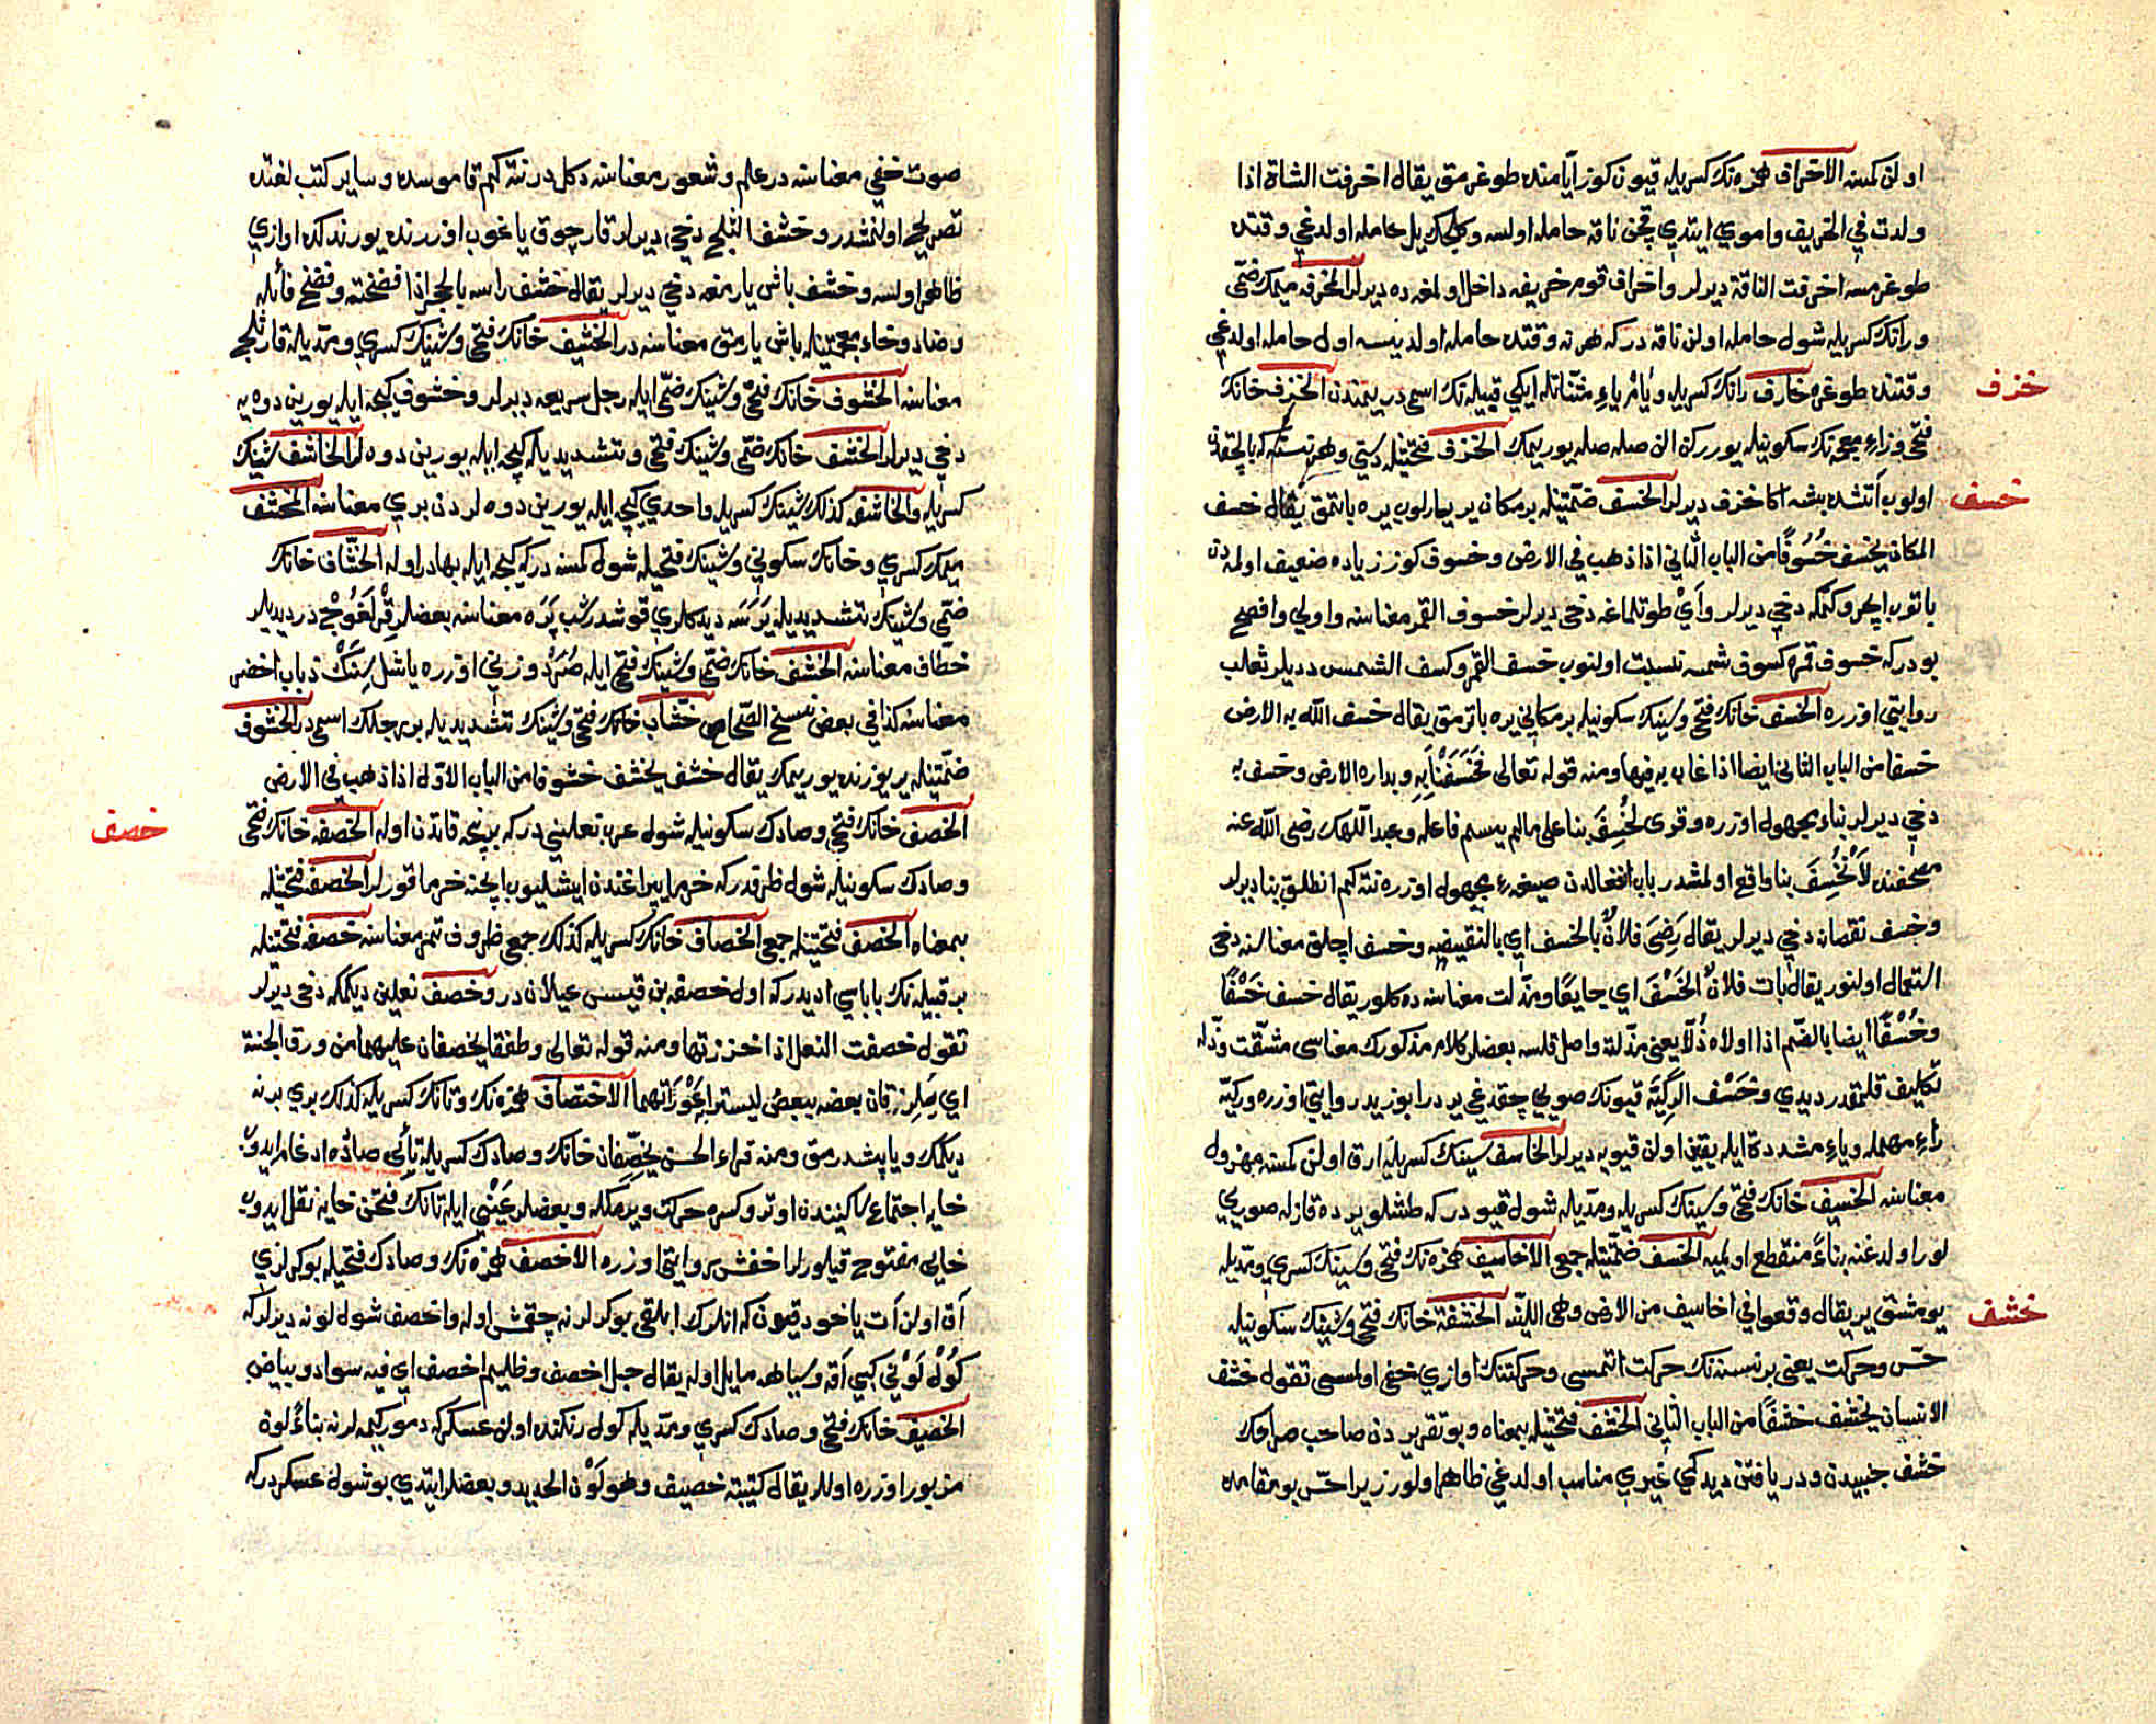 اولن كمسنه الاخراف همزه نك كسريله قيون كوز ايامنده طوغرمق يقال اخرفت الشاة اذا
ولدت في الخريف واموي ايتدي قچن ناقه حامله اولسه وكلجك ييل حامله اولدغي وقتده
طوغرمسه اخرفت الناقة ديرلر واخراف قوم خريفه داخل اولمغه ده ديرلر المخرفه ميمك ضمّى
ورانك كسريله شول حامله اولن ناقه دركه هر نه وقتده حامله اولديسه اول حامله اولدغي
وقتنده طوغره خارف رانك كسريله ويام ياء مثنّاتله ايكي قبيله نك اسمى در يمندن الخزف خانك
خزف
فتحى وزاء معجمه نك سكونيله يوررکن الن صله صله يوريمك الخزف فتحتيله دستي وهر نسنه كه بالچقدن
اولوب آتشده بشه اكا خزف ديرلر الخسف ضمّتيله بر مكان ير ياريلوب يره باتمق يقال خسف
خسف
المكان يخسف خُسُوفًا من الباب الثاني اذا ذهب في الارض وخسوف كوز زياده ضعيف اولمدن
باتوب ايچرو كتمكه دخي ديرلر وآيْ طوتلماغه دخي ديرلر خسوف القمر معناسنه واولي وافصح
بودركه خسوف قمره كسوف شمسه نسبت اولنوب خسف القمر وكسف الشمس دديلر ثعلب
روايتي اوزره الخسف خانك فتحى وسينك سكونيله بر مكاني يره باترمق يقال خسف الله به الارض
خسفا من الباب الثاني ايضا اذا غاب به فيها ومنه قوله تعالى فَخَسَفْنَا بِهِ وبداره الارض وخسف به
دخي ديرلر بناء مجهول اوزره وقرئ لَخُسِفَ بنا على مالم يسم فاعله وعبد اللّهك رضى اللّه عنه
مصحفنده لَاُنْخُسِفَ بنا واقع اولمشدر باب انفعالدن صيغهء مجهول اوزره نته كم انطلق بنا ديرلر
وخسف نقصانه دخي ديرلر يقال رَضِىَ فلانٌ بالخسف اي بالنقيصه وخسف اچلق معناسنه دخى
استعمال اولنور يقال بات فلانٌ الخَسْفَ اي جايعًا ومذلت معناسنه ده كلور يقال خسف خَسْفًا
وخُسْفًا ايضا بالضّم اذا اولاه ذُلّا يعنى مذلته واصل قلسه بعضلر كلام مذكورك معناسى مشقّت وذله
تكليف قلمقدر ديدي وخَسْف الرَّكِيَّة قيونك صويي چقدغي يردر ابو زيد روايتي اوزره وركيّه
راء مهمله وياء مشدّدة ايله يقين اولن قيويه ديرلر الخاسف سينك كسريله ارق اولن كمسنه مهزول
معناسنه الخسيف خانك فتحى وسينك كسريله ومدّيله شول قيودركه طشلو يرده قازله صويي
لور اولدغنه بناءً منقطع اولميه الخسف ضمّتيله جمعى الاخاسيف همزه نك فتحى وسينك كسري ومدّيله
يومشق ير يقال وقعوا في اخاسيف من الارض وهى اللينّه الخشفة خانك فتحى وشينك سكونيله
خشف
حسّ وحركت يعنى بر نسنه نك حركت اتمسى وحركتنك اوازي خفى اولمسى تقول خشف
الانسان يخشف خشفًا من الباب الثاني الخشف فتحتيله بمعناه وبو تقريردن صاحب صراحك
خشف جنبيدن ودريافتن ديدكي غيري مناسب اولدغي ظاهر اولور زيرا حسّ بو مقامده
صوت خفي معناسنه در علم وشعور معناسنه دكل در نته كم قاموسده وساير كتب لغتده
تصريح اولنمشدر وخشف الثلج دخي ديرلر قار چوق ياغوب اوزرنده يورندكده اوازي
ظاهر اولسه وخشف باش يارمغه دخي ديرلر يقال خشف راسه بالحجر اذا فضخته وفضخ فائله
وضاد وخاء معجمتيله باش يارمق معناسنه در الخشيف خانك فتحى وشينك كسري ومدّيله قار ثلج
معناسنه الخشوف خانك فتحى وشينك ضمّى ايله رجل سريعه ديرلر وخشوف كيجه ايله يورين دوه يه
دخي ديرلر الخشف خانك ضمّى وشينك فتحى وتشديديله كيجه ايله يورين دوه لر الخاشف شينك
كسريله والخاشفه كذلك شينك كسريله واحدي كيجه ايله يورين دوه لردن بري معناسنه المخشف
ميمك كسري وخانك سكوني وشينك فتحيله شول كمسنه دركه كيجه ايله بهادر اوله الخشّاف خانك
ضمّى وشينك تشديديله يَرَسَه ديدكلري قوشدر شب پَرَه معناسنه بعضلر قِرْلَغُوچ در ديديلر
خطّاف معناسنه الخشف خانك ضمّى وشينك فتحى ايله صُرَدْ وزني اوزره ياشل سِنَكْ ذباب اخضر
معناسنه كذا في بعض نسخ الصّحاح خشّاب خانك فتحى وشينك تشديديله بر رجلك اسمى در الخشوف
ضمّتيله ير يوزنده يوريمك يقال خشف يخشف خشوفا من الباب الاوّل اذا ذهب في الارض
الخصف خانك فتحى وصادك سكونيله شول عرب نعليني دركه بر نيچه قاتدن اوله الخصفه خانك فتحى
خصف
وصادك سكونيله شول ظرفدركه خرما يپراغندن ايشليوب ايچنه خرما قورلر الخصفه فتحتيله
بمعناه الخصف فتحتيله جمعى الخصاف خانك كسريله كذلك جمعى ظروف تمر معناسنه خصفه فتحتيله
بر قبيله نك باباسي اديدركه اول خصفه بن قيس عيلان در وخصف نعلين ديكمكه دخى ديرلر
تقول خصفت النعل اذا خرزتها ومنه قوله تعالى وطفقا يخصفان عليهما من ورق الجنة
اي يَلزقان بعضه ببعض ليسترا به عَوْرَاتهما الاختصاف همزه نك وتانك كسريله كذلك بري برنه
ديكمك وياپشدرمق ومنه قراء الحسن يَخِصِّفان خانك وصادك كسريله تائى صاده ادغام ايدوب
خايه اجتماع ساكنيندن اوترو كسره حركت ويرمكله وبعضلر عَيْنى ايله تانك فتحن خايه نقل ايدوب
خايى مفتوح قيلورلر اخفش روايتى اوزره الاخصف همزه نك وصادك فتحيله بوكرلري
آق اولن آت ياخود قيون كه انلرك ابلقى بوكرلرنه چقمش اوله واخصف شول لونه ديرلركه
كُوْل لَوْني كبي آقه وسياهه مايل اوله يقال جبل اخصف وظليم اخصف اي فيه سواد وبياض
الخصيف خانك فتحى وصادك كسري ومدّيله كول رنكنده اولن عسكركه دمور كيمه لرنه بناءً لون
مزبور اوزره اولالر يقال كتيبة خصيف وهو لَوْن الحديد وبعضلر ايتدي بو شول عسكر دركه